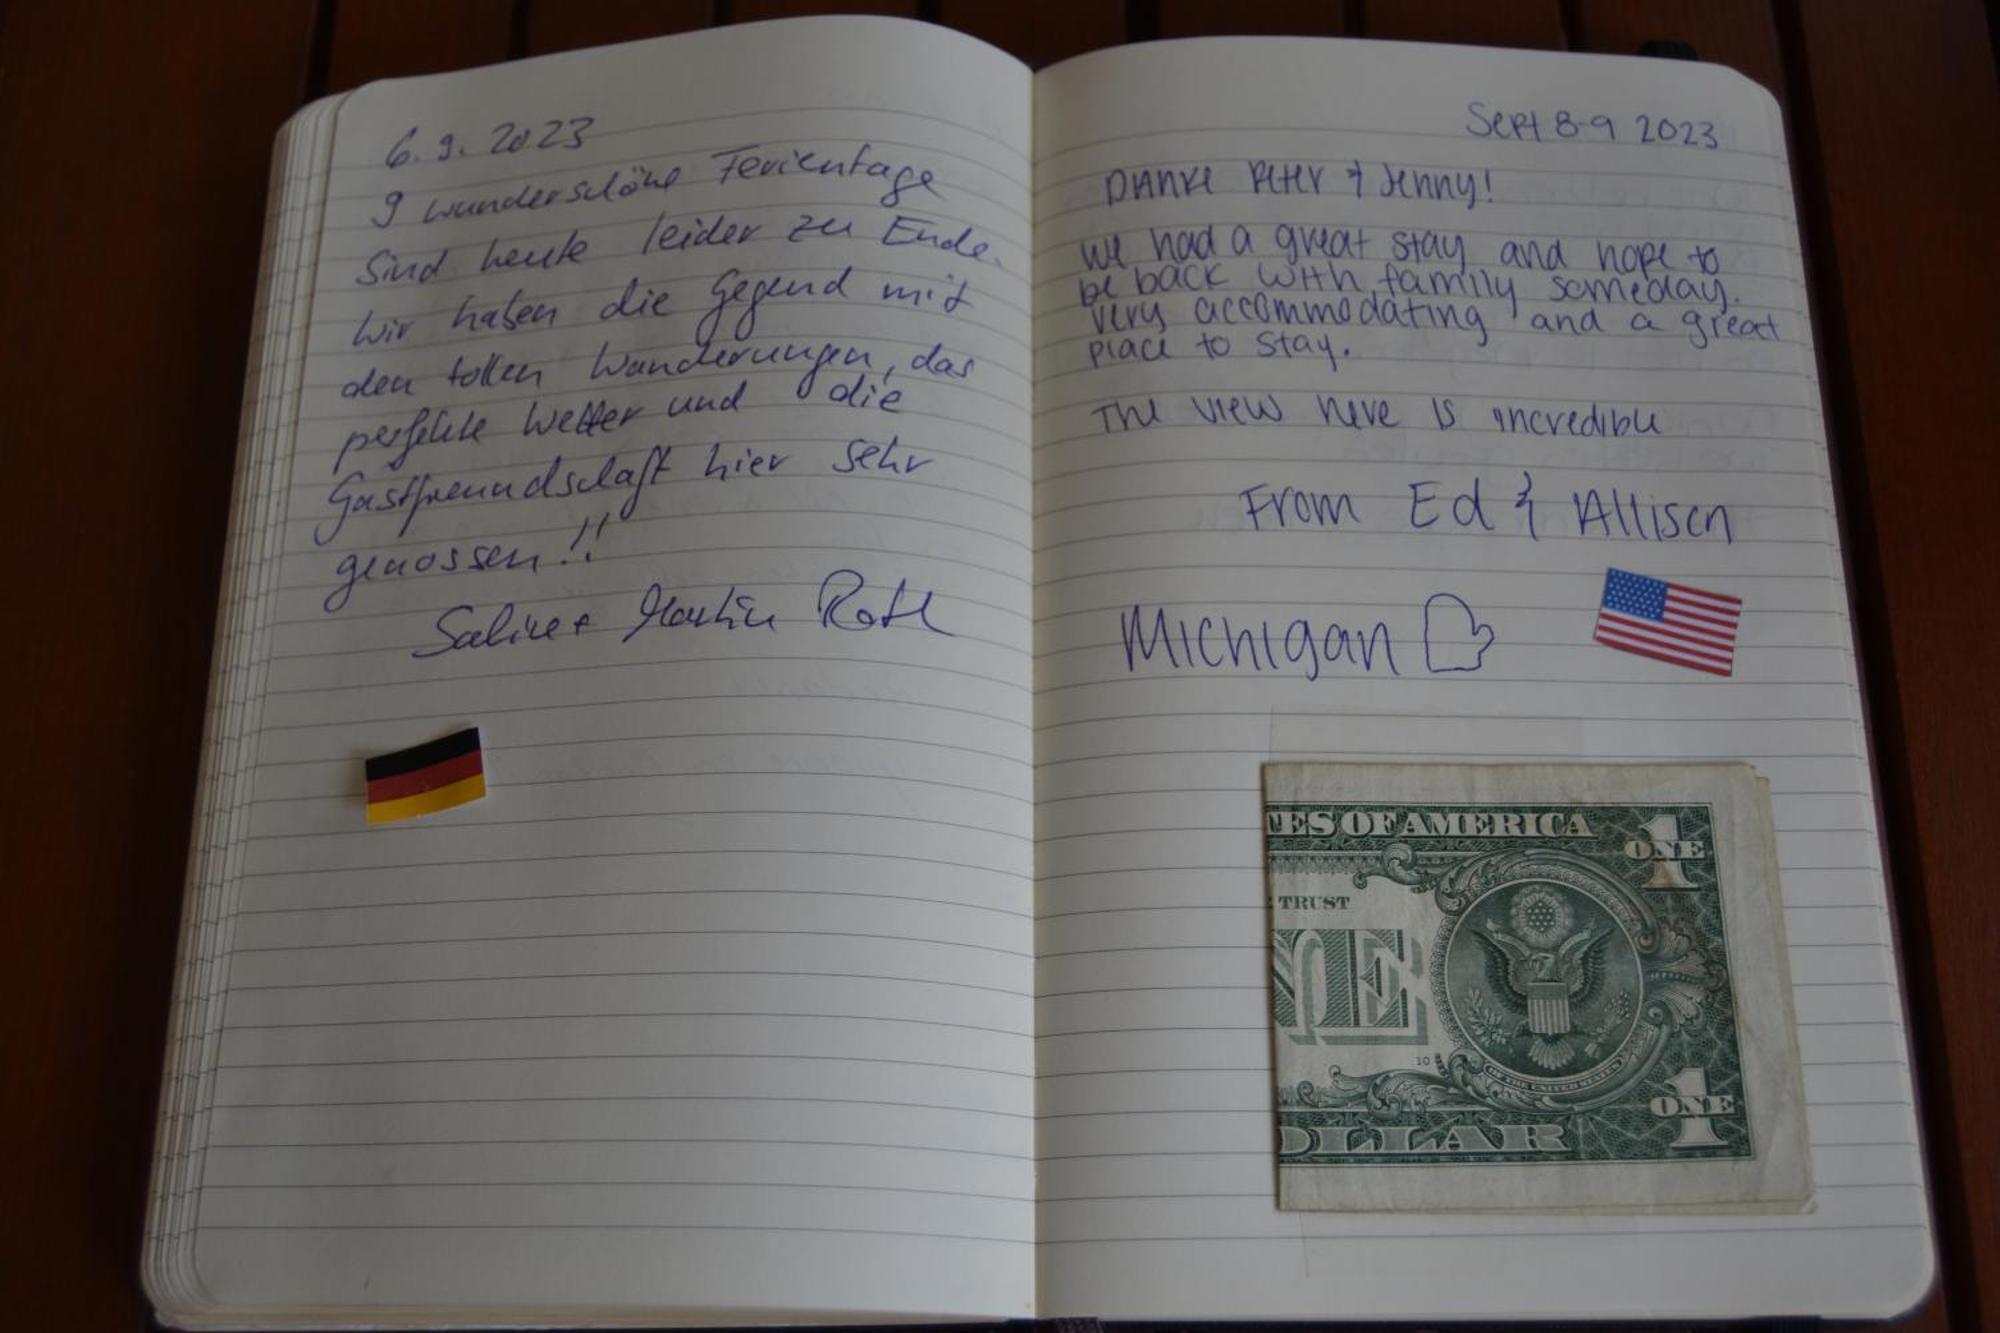 6.9.2023
9 wunderschöne Ferientage
sind heute leider zu Ende.
Wir haben die Gegend mit
den tollen Wanderungen, das
perfekte Wetter und die
Gastfreundschaft hier sehr
genossen!!
Sabine + Martin Roth
Sept 8-9 2023
DANKE Peter & Jenny!
We had a great stay and hope to
be back with family someday.
Very accommodating and a great
place to stay.
The view here is incredible
From Ed & Allison
Michigan
TES OF AMERICA
1
ONE
TRUST
NE
10
OF THE UNITED STATES
1
ONE
OLLAR